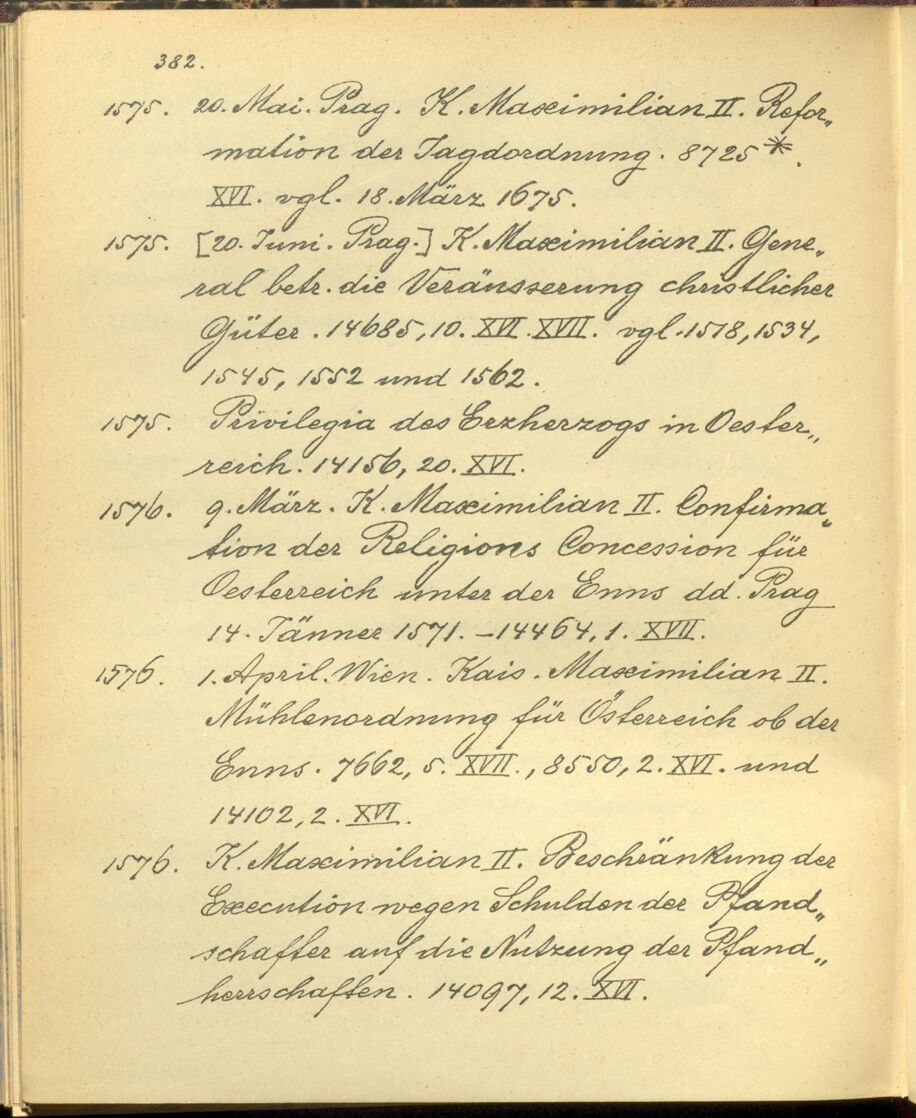 382.
1575. 20. Mai. Prag. K. Maximilian II. Refor„
mation der Jagdordnung. 8725 *.
XVI. vgl. 18. März 1675.
1575. [20. Juni. Prag.] K. Maximilian II. Gene„
ral betr. die Veräusserung christlicher
Güter. 14685, 10. XVI. XVII. vgl. 1518, 1534,
1545, 1552 und 1562.
1575. Privilegia des Erzherzogs in Oester„
reich. 14156, 20. XVI.
1576. 9. März. K. Maximilian II. Confirma„
tion der Religions Concession für
Oesterreich unter der Enns dd. Prag
14. Jänner 1571. – 14464, 1. XVII.
1576. 1. April. Wien. Kais. Maximilian II.
Mühlenordnung für Österreich ob der
Enns. 7662, 5. XVII., 8550, 2. XVI. und
14102, 2. XVI.
1576. K. Maximilian II. Beschränkung der
Execution wegen Schulden der Pfand„
schafter auf die Nutzung der Pfand„
herrschaften. 14097, 12. XVI.